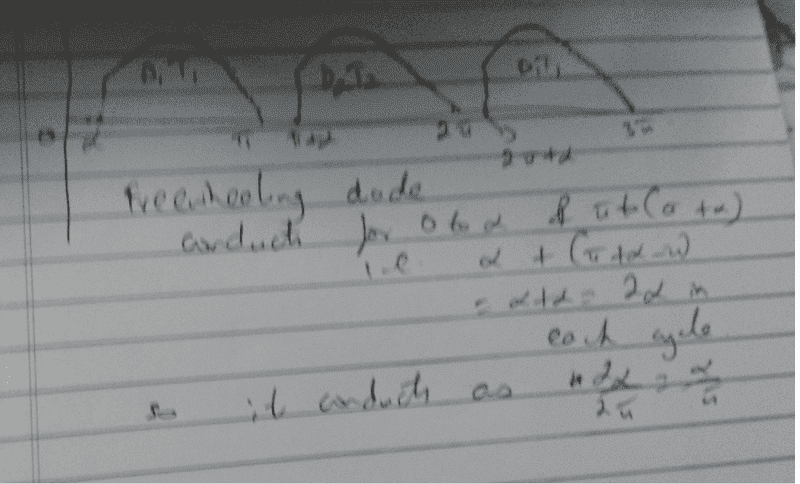 D₁T₁ D₂T₂ D₁T₁
0 α π π+α 2π 3π
2π+α
freewheeling diode
conducts for 0 to α & π to (π+α)
i.e. α + (π+α-π)
= α+α = 2α in
each cycle
so it conducts as 2α/2π = α/π